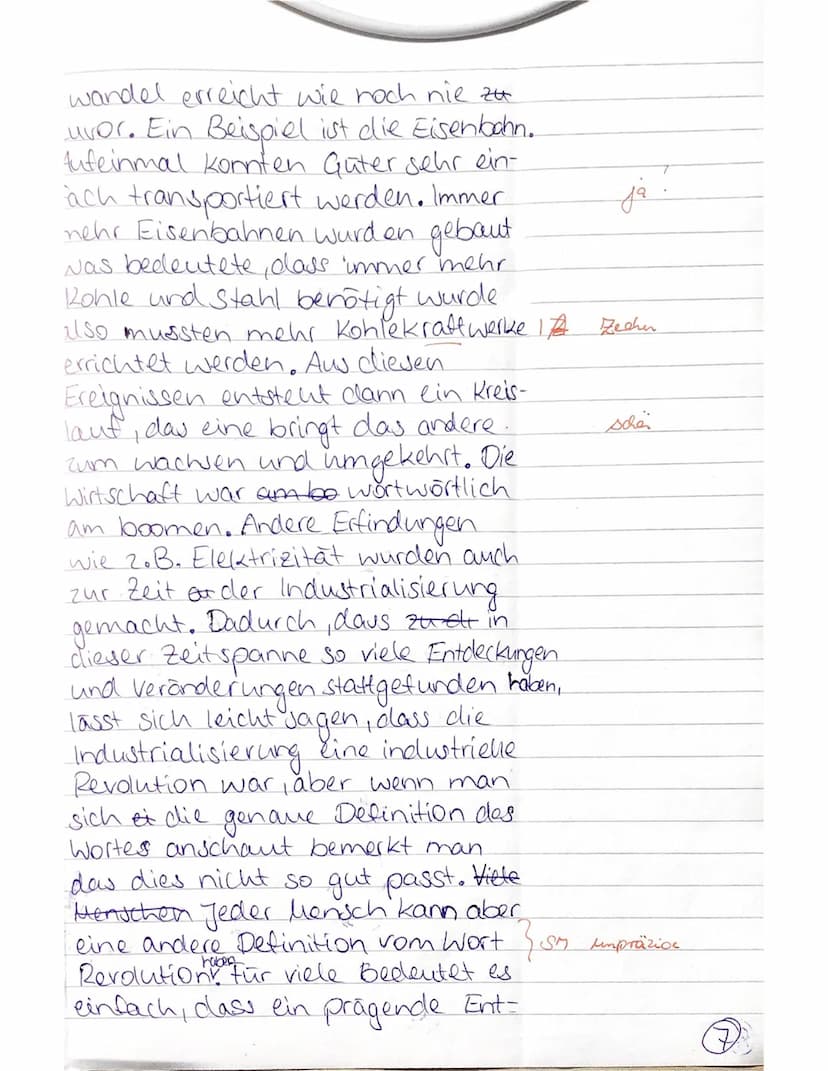 wandel erreicht wie noch nie zu
uvor. Ein Beispiel ist die Eisenbahn.
Aufeinmal konnten Güter sehr ein-
ach transportiert werden. Immer ja!
mehr Eisenbahnen wurden gebaut
was bedeutete, dass immer mehr
Kohle und Stahl benötigt wurde
also mussten mehr Kohlekraftwerke Zechen
errichtet werden. Aus diesen
Ereignissen entsteht dann ein Kreis-
lauf, das eine bringt das andere. schön
zum wachsen und umgekehrt. Die
Wirtschaft war am bo wortwörtlich
am boomen. Andere Erfindungen
wie z.B. Elektrizität wurden auch
zur Zeit der Industrialisierung
gemacht. Dadurch, dass in
dieser Zeitspanne so viele Entdeckungen
und Veränderungen stattgefunden haben,
lässt sich leicht sagen, dass die
Industrialisierung eine industrielle
Revolution war, aber wenn man
sich die genaue Definition des
Wortes anschaut bemerkt man
das dies nicht so gut passt. Viele
Menschen Jeder Mensch kann aber
eine andere Definition vom Wort } SM unpräzise
Revolution haben. Für viele Bedeutet es
einfach, dass ein prägende Ent-
7